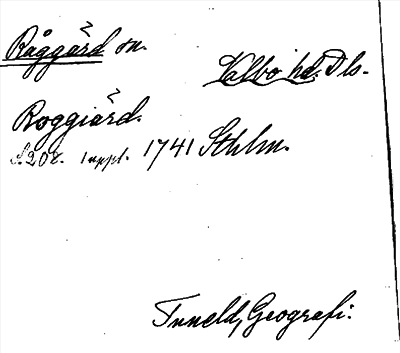 Råggärd sn.
Valbo hd. Dls.
Roggiärd.
S. 202. 1 uppl. 1741 Sthlm.
Tuneld, Geografi.